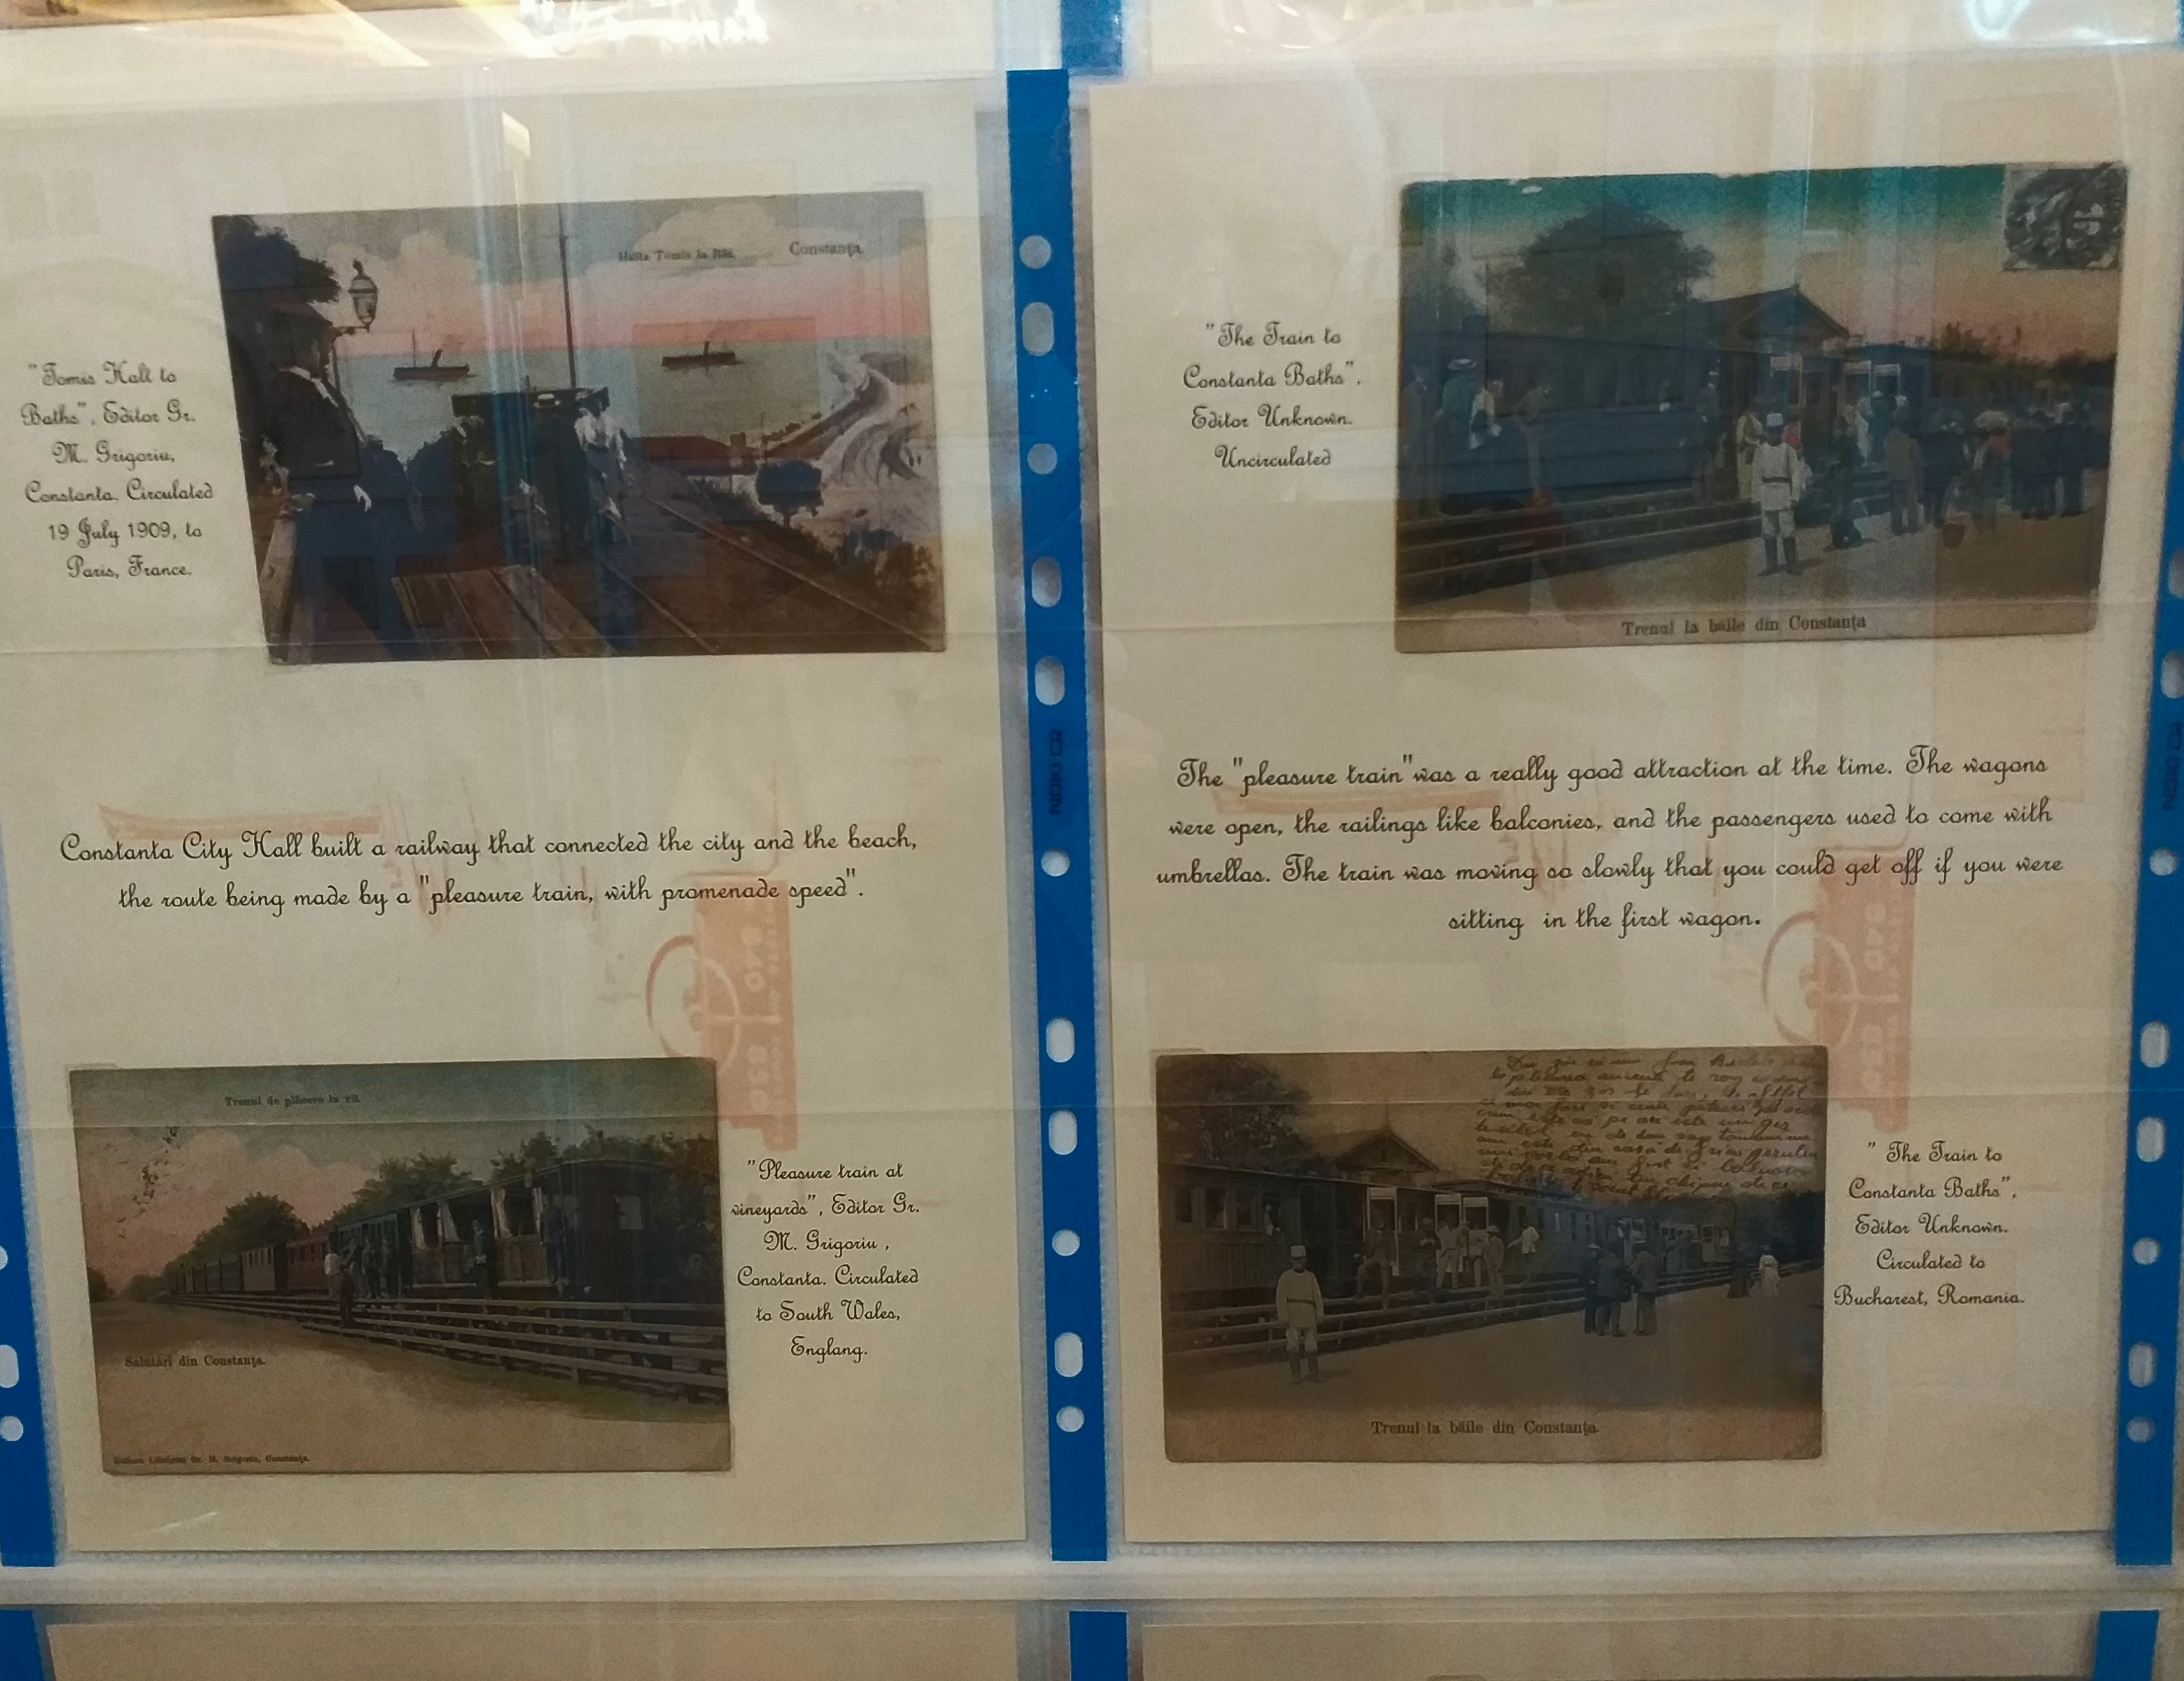 "Tomis Halt to
Baths", Editor Gr.
M. Grigoriu,
Constanta. Circulated
19 July 1909, to
Paris, France.
Halta Tomis la Băi. Constanţa.
Constanta City Hall built a railway that connected the city and the beach,
the route being made by a "pleasure train, with promenade speed".
Trenul de plăcere la vii.
Salutări din Constanţa.
Constanţa.
"Pleasure train at
vineyards", Editor Gr.
M. Grigoriu ,
Constanta. Circulated
to South Wales,
Englang.
NOKI CR
"The Train to
Constanta Baths",
Editor Unknown.
Uncirculated
Trenul la băile din Constanţa
The "pleasure train"was a really good attraction at the time. The wagons
were open, the railings like balconies, and the passengers used to come with
umbrellas. The train was moving so slowly that you could get off if you were
sitting in the first wagon.
Trenul la băile din Constanţa.
" The Train to
Constanta Baths",
Editor Unknown.
Circulated to
Bucharest, Romania.
NOKI CR